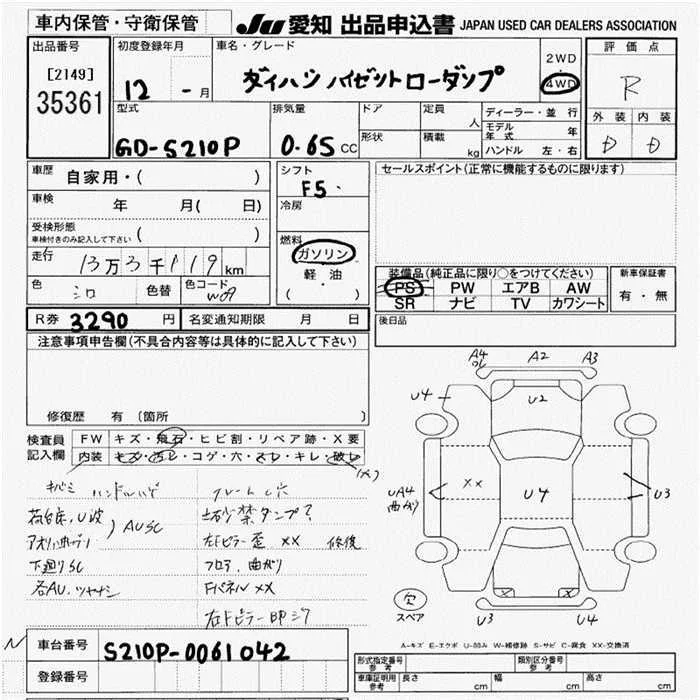 車内保管・守衛保管
JU 愛知 出品申込書 JAPAN USED CAR DEALERS ASSOCIATION
出品番号
[2149]
35361
初度登録年月
12 - 月
車名・グレード
ダイハツ ハイゼットローダンプ
2WD
・
4WD
評価点
R
外装 内装
D D
型式
GD-S210P
排気量
0.65 CC
ドア
形状
定員
人
積載
kg
ディーラー・並行
モデル年式 年
ハンドル 左・右
車歴 自家用・( )
車検 年 月( 日)
受検形態
車検付きのみ記入して下さい ( )
走行 13万3千119 km
色 シロ 色替 色コード W09
シフト
F5
冷房
燃料
ガソリン
軽・油
( )
セールスポイント(正常に機能するものに限ります)
装備品(純正品に限り○をつけてください)
PS PW エアB AW
SR ナビ TV カワシート
新車保証書
有・無
R券 3290 円 名変通知期限 月 日
後日品
注意事項申告欄(不具合内容等は具体的に記入して下さい)
修復歴 有 (箇所 )
検査員
記入欄
FW キズ・飛石・ヒビ割・リペア跡・X要
内装 キズ・汚レ・コゲ・穴・スレ・キレ・破レ
キバミ ハンドルハゲ
荷台床、U波
アオリ、曲ガリ
AUSC
下廻りSC
各AU、ツヤナシ
フレームL穴
土砂禁ダンプ?
左Fピラー歪 XX 修復
フロア、曲がり
FパネルXX
A4
A2
A3
U4
U2
XX
U4
UA4
曲がり
U3
U3
U4
スペア
A-キズ E-エクボ U-凹み W-補修跡 S-サビ C-腐食 XX-交換済
車台番号 S210P-0061042
登録番号
形式指定番号
参考
類別区分番号
参考
車庫証明用
参考
長さ cm 幅 cm 高さ cm